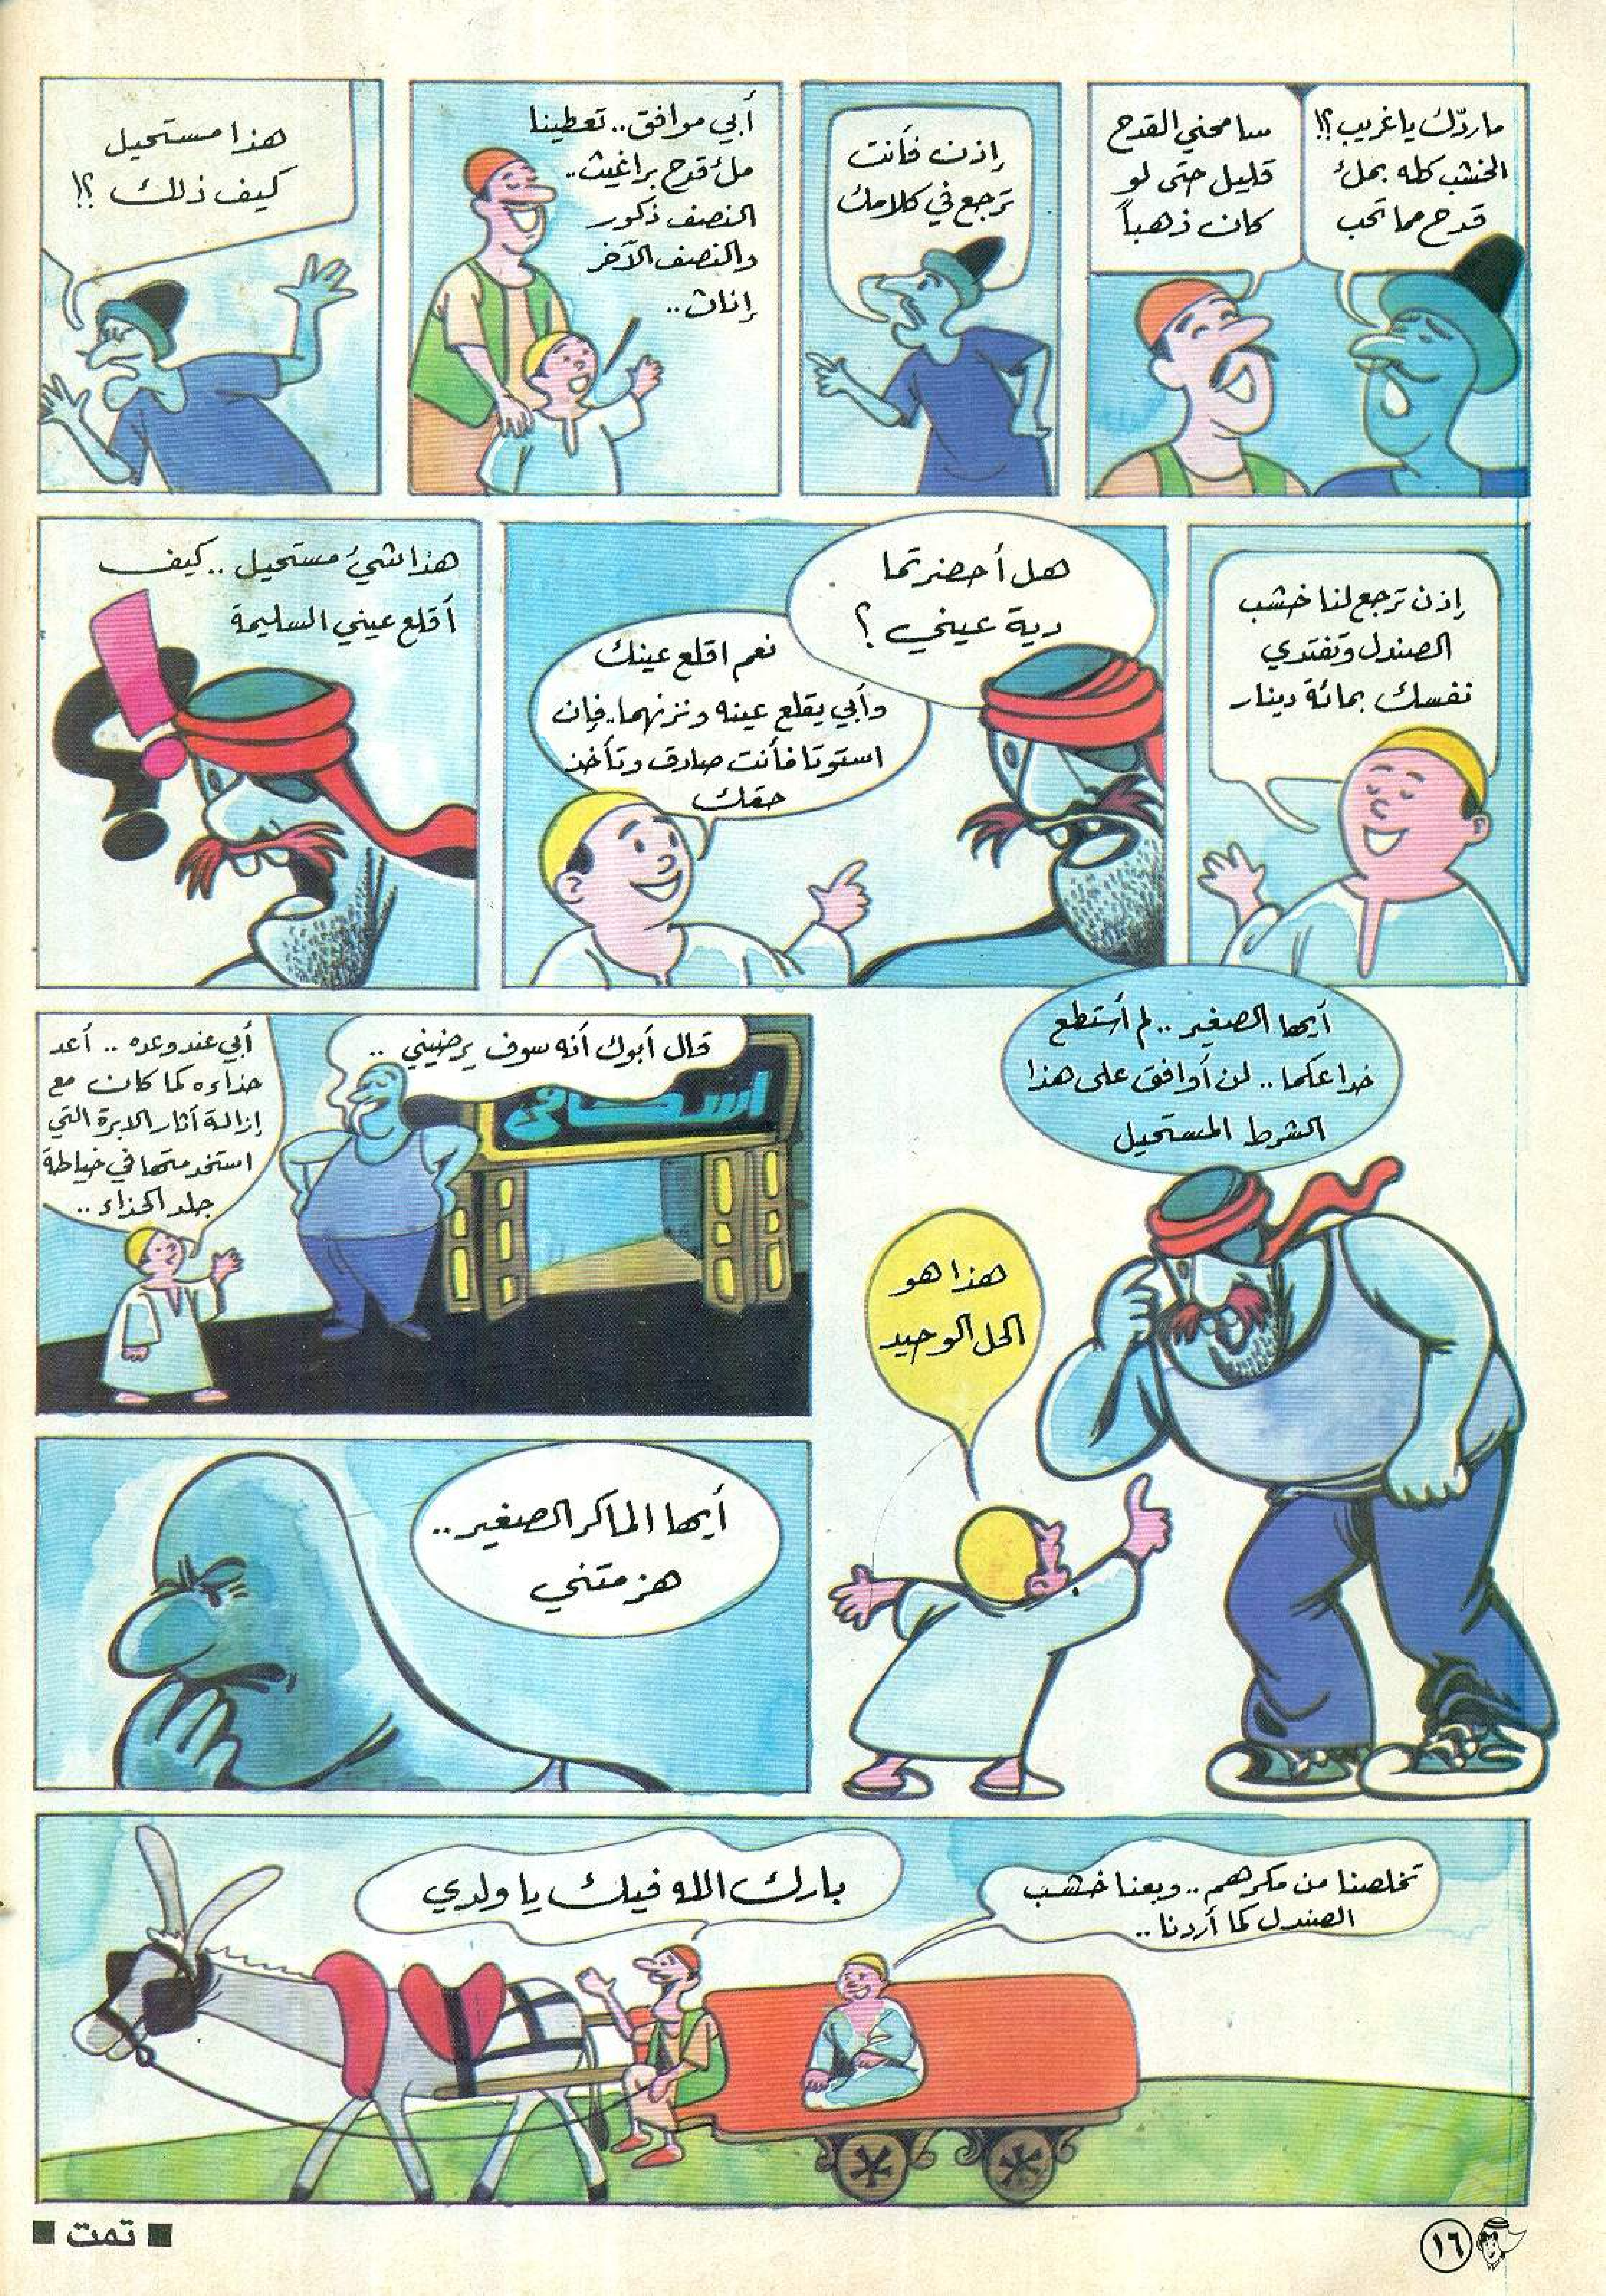 ما ردّك يا غريب ؟!
الخشب كله بملء
قدح مما تحب
سامحني القدح
قليل حتى لو
كان ذهباً
إذن فأنت
ترجع في كلامك
أبي موافق.. تعطينا
ملء قدح براغيث..
النصف ذكور
والنصف الآخر
إناث..
هذا مستحيل
كيف ذلك ؟!
إذن ترجع لنا خشب
الصندل وتفتدي
نفسك بمائة دينار
هل أحضرتما
دية عيني ؟
نعم اقلع عينك
وأبي يقلع عينه ونزنهما.. فإن
استوتا فأنت صادق وتأخذ
حقك
هذا شيء مستحيل .. كيف
أقلع عيني السليمة
أيها الصغير .. لم أستطع
خداعكما .. لن أوافق على هذا
الشرط المستحيل
هذا هو
الحل الوحيد
قال أبوك أنه سوف يرضيني ..
اسكافى
أبي عند وعده .. أعد
حذاءه كما كان مع
إزالة آثار الإبرة التي
استخدمتها في خياطة
جلد الحذاء ..
أيها الماكر الصغير ..
هزمتني
تخلصنا من مكرهم .. وبعنا خشب
الصندل كما أردنا ..
بارك الله فيك يا ولدي
■ تمت ■
١٦